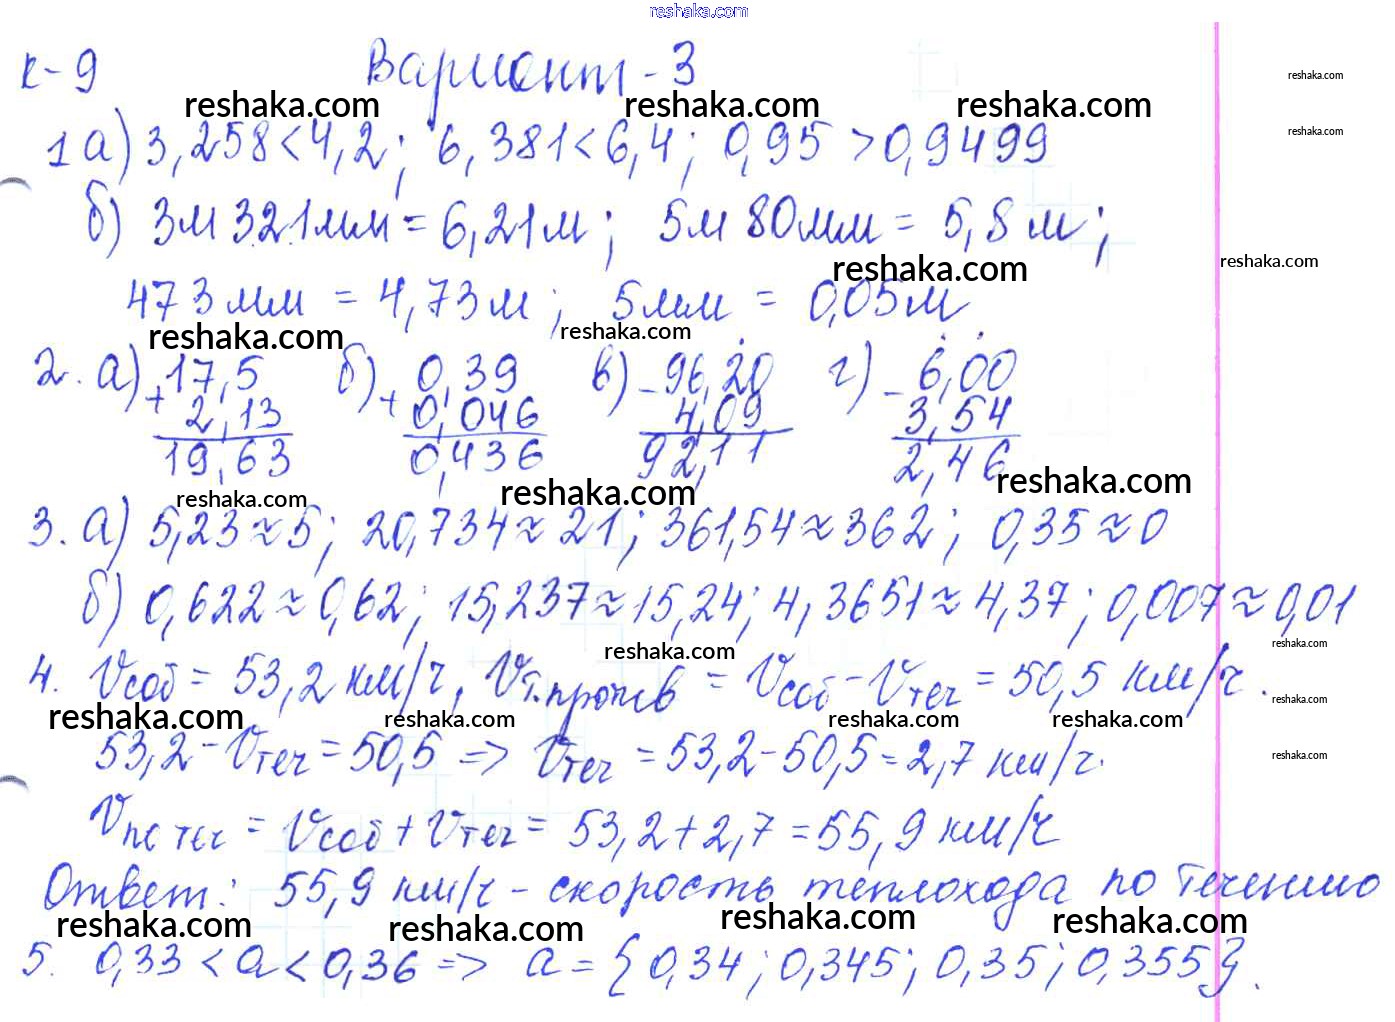 reshaka.com
К-9 Вариант-3
reshaka.com reshaka.com reshaka.com reshaka.com
1 а) 3,258 < 4,2; 6,381 < 6,4; 0,95 > 0,9499 reshaka.com
б) 3м 321мм = 6,21м; 5м 80мм = 5,8м;
reshaka.com reshaka.com
473мм = 4,73м; 5мм = 0,05м
reshaka.com reshaka.com
2. а) +17,5 б) + 0,39 в) -96,20 г) - 6,00
2,13 0,046 4,09 3,54
19,63 0,436 92,11 2,46
reshaka.com reshaka.com reshaka.com
3. а) 5,23≈5; 20,734≈21; 361,54≈362; 0,35≈0
б) 0,622≈0,62; 15,237≈15,24; 4,3651≈4,37; 0,007≈0,01
reshaka.com reshaka.com
4. Vсоб = 53,2 км/ч, Vт.против = Vсоб - Vтеч = 50,5 км/ч.
reshaka.com reshaka.com reshaka.com reshaka.com reshaka.com
53,2 - Vтеч = 50,5 => Vтеч = 53,2-50,5=2,7 км/ч. reshaka.com
Vпо теч = Vсоб + Vтеч = 53,2+2,7=55,9 км/ч
Ответ: 55,9 км/ч - скорость теплохода по течению
reshaka.com reshaka.com reshaka.com reshaka.com
5. 0,33 < a < 0,36 => a = {0,34; 0,345; 0,35; 0,355}.